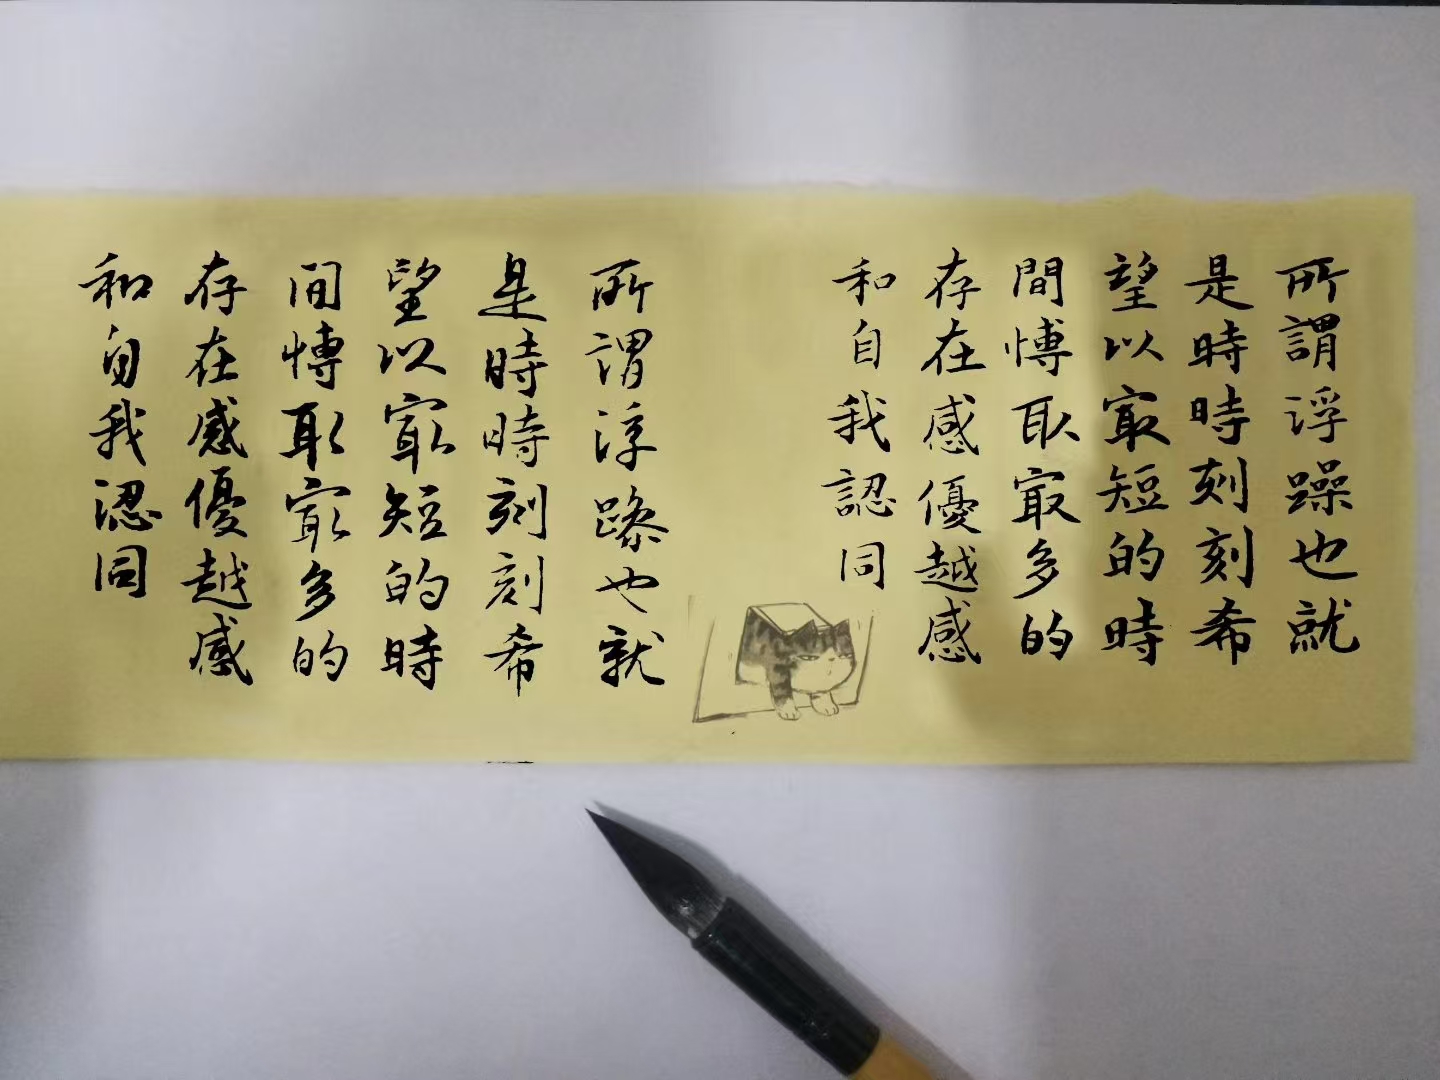 所謂浮躁也就
是時時刻刻希
望以最短的時
間博取最多的
存在感優越感
和自我認同
所謂浮躁也就
是時時刻刻希
望以最短的時
间博取最多的
存在感優越感
和自我認同